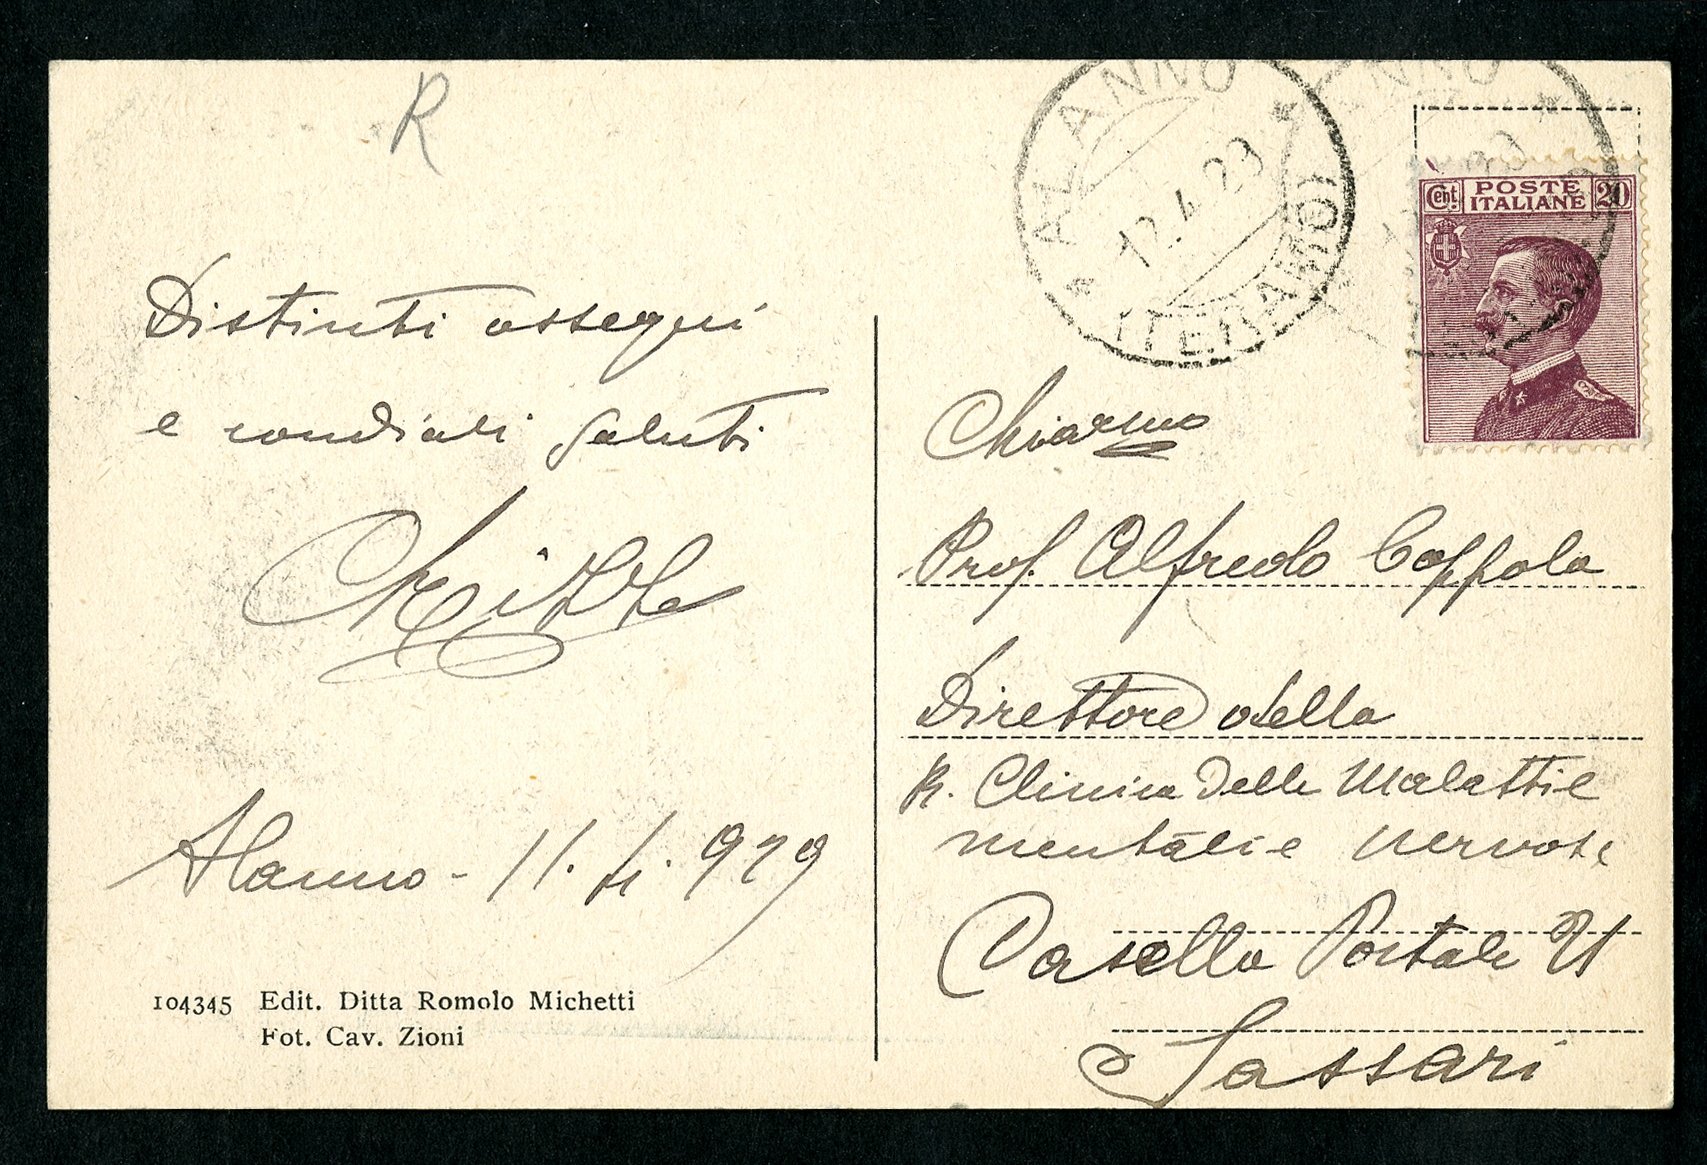 R
Distinti ossequi
e cordiali saluti
Alanno - 11. 4. 929
104345 Edit. Ditta Romolo Michetti
Fot. Cav. Zioni
ALANNO
12.4.29
(TERAMO)
Cent. POSTE ITALIANE 20
Chiarmo
Prof. Alfredo Coppola
Direttore della
R. Clinica delle Malattie
mentali e nervose
Casella Postale
Sassari